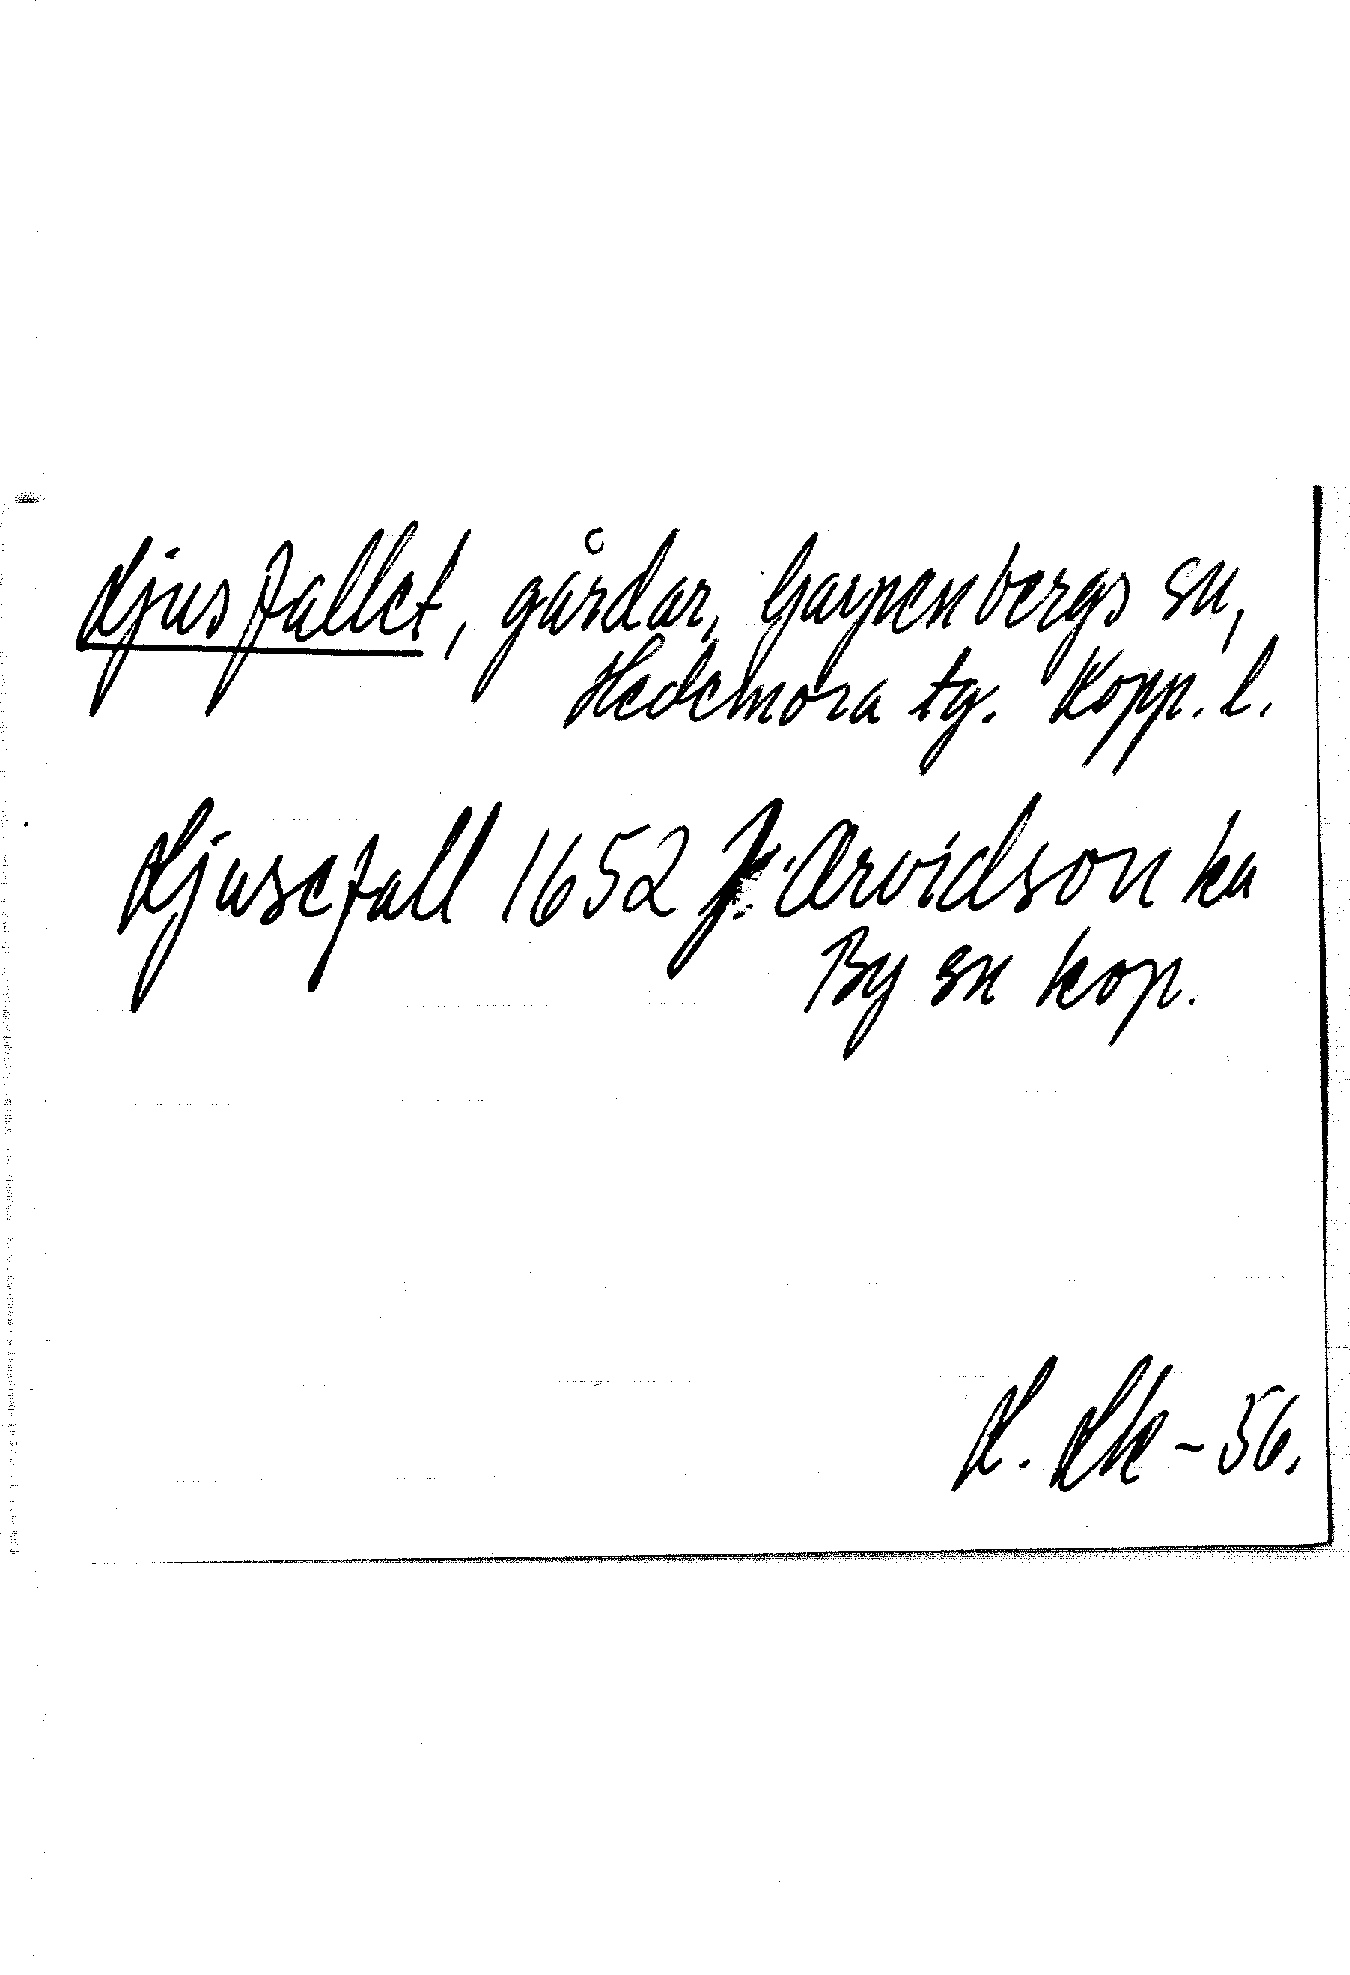 Ljusfallet, gårdar, Garpenbergs sn,
Hedemora tg. Kopp. l.
Ljusefall 1652 J. Arvidson ka
By sn kop.
- 56.